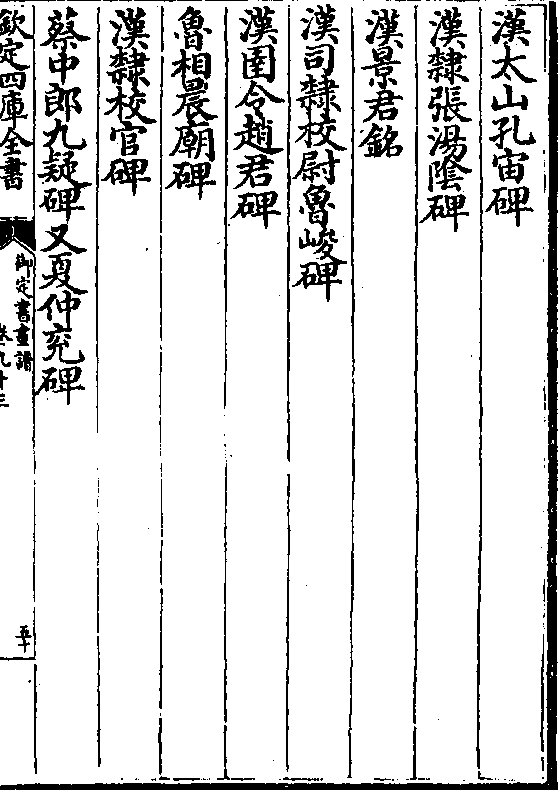 漢太山孔宙碑
漢隸張湯陰碑
漢景君銘
漢司隸校尉魯峻碑
漢圉令趙君碑
魯相晨廟碑
漢隸校官碑
蔡中郎九疑碑又夏仲兖碑
欽定四庫全書
御定書畫譜
卷九十三
五十